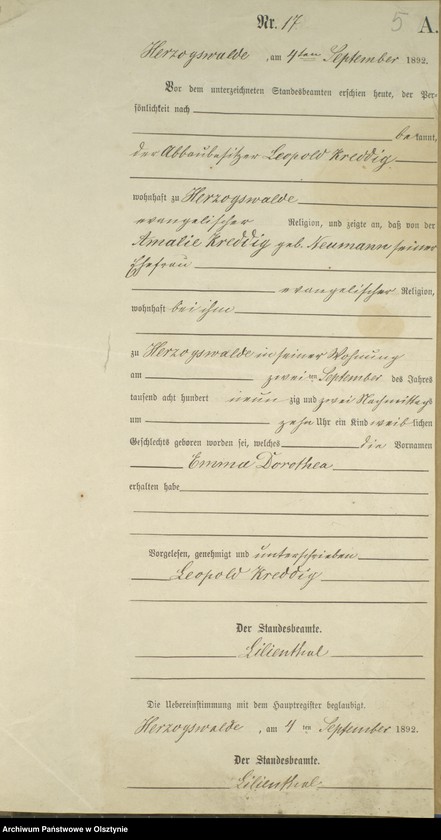 Nr. 17
5 A.
Herzogswalde, am 4ten September 1892.
Vor dem unterzeichneten Standesbeamten erschien heute, der Per-
sönlichkeit nach
bekannt,
der Abbaubesitzer Leopold Kreddig
wohnhaft zu Herzogswalde
evangelischer Religion, und zeigte an, daß von der
Amalie Kreddig geb. Neumann seiner
Ehefrau
evangelischer Religion,
wohnhaft bei ihm
zu Herzogswalde in seiner Wohnung
am zweiten September des Jahres
tausend acht hundert neunzig und zwei Nachmittags
um zehn Uhr ein Kind weiblichen
Geschlechts geboren worden sei, welches die Vornamen
Emma Dorothea
erhalten habe
Vorgelesen, genehmigt und unterschrieben
Leopold Kreddig
Der Standesbeamte.
Lilienthal
Die Uebereinstimmung mit dem Hauptregister beglaubigt.
Herzogswalde, am 4ten September 1892.
Der Standesbeamte.
Lilienthal.
Archiwum Państwowe w Olsztynie